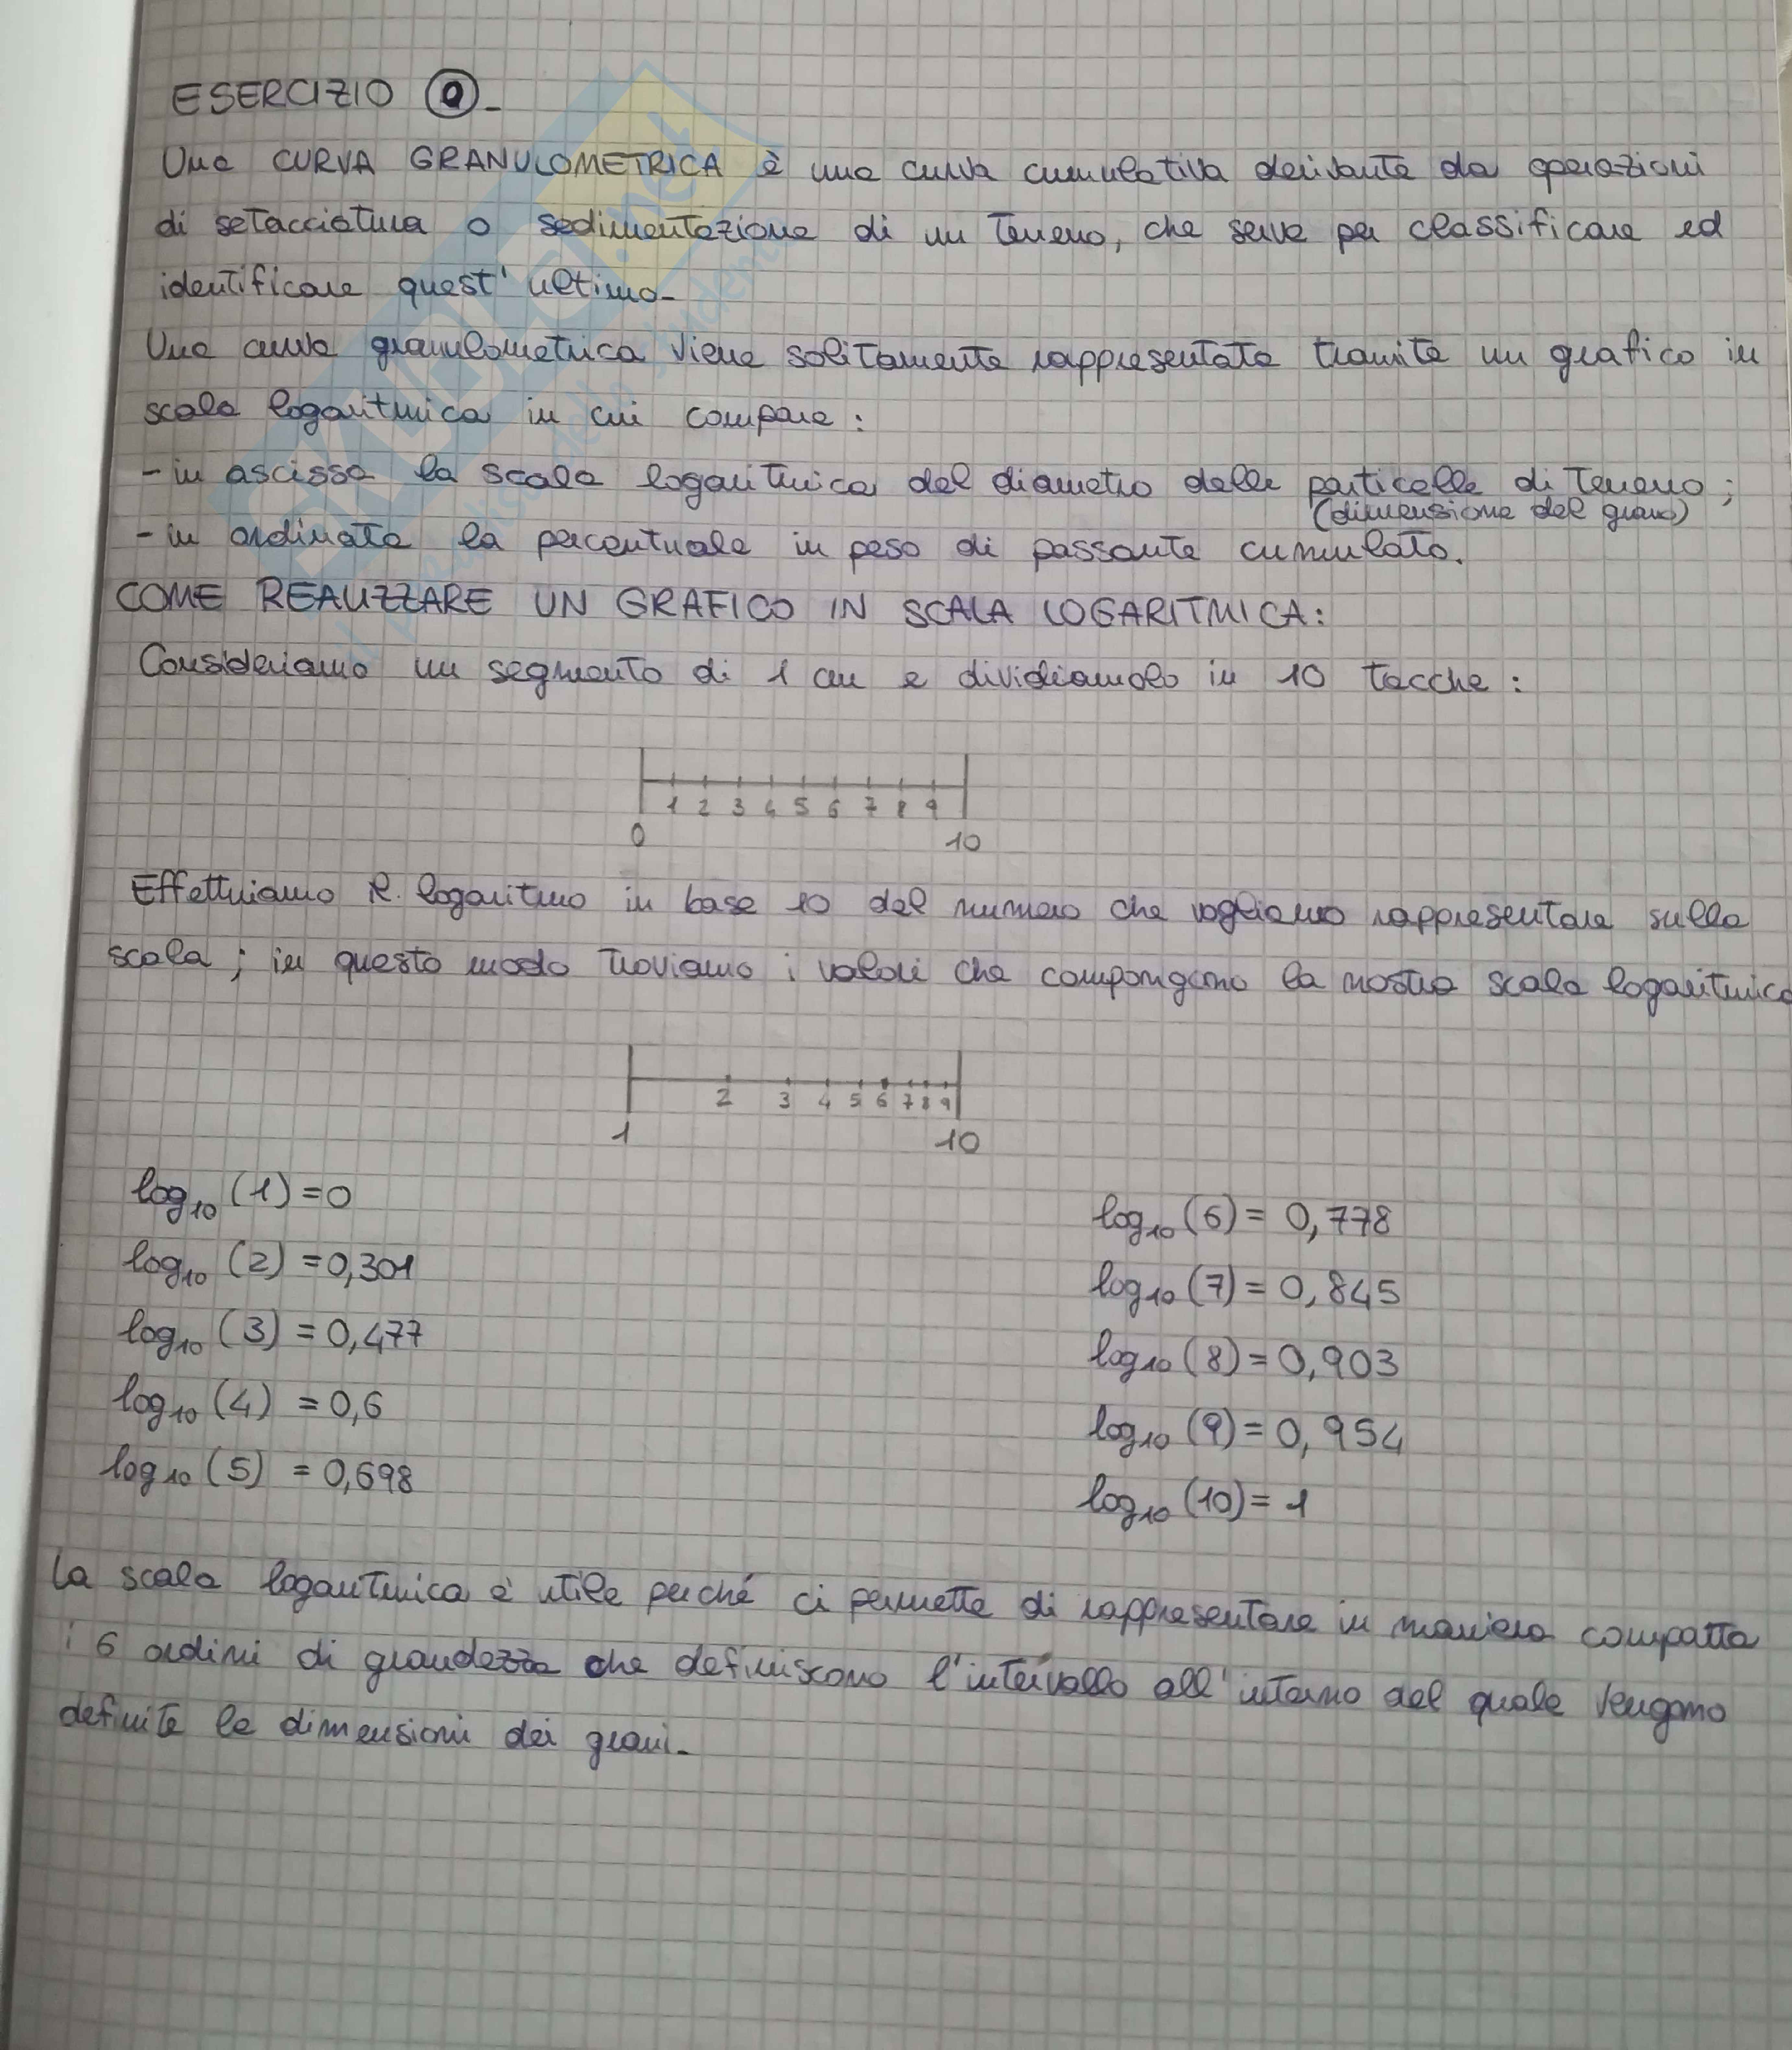 ESERCIZIO 0-
Una CURVA GRANULOMETRICA è una curva cumulativa derivante da operazioni
di setacciatura o sedimentazione di un terreno, che serve per classificare ed
identificare quest'ultimo-
Una curva granulometrica viene solitamente rappresentata tramite un grafico in
scala logaritmica in cui compare:
- in ascissa la scala logaritmica del diametro delle particelle di terreno;
(dimensione del grano)
- in ordinata la percentuale in peso di passante cumulato.
COME REALIZZARE UN GRAFICO IN SCALA LOGARITMICA:
Consideriamo un segmento di 1 cm e dividiamolo in 10 tacche:
1 2 3 4 5 6 7 8 9
0 10
Effettuiamo il logaritmo in base 10 del numero che vogliamo rappresentare sulla
scala; in questo modo troviamo i valori che compongono la nostra scala logaritmica
2 3 4 5 6 7 8 9
1 10
log10 (1) = 0
log10 (2) = 0,301
log10 (3) = 0,477
log10 (4) = 0,6
log10 (5) = 0,698
log10 (6) = 0,778
log10 (7) = 0,845
log10 (8) = 0,903
log10 (9) = 0,954
log10 (10) = 1
La scala logaritmica è utile perché ci permette di rappresentare in maniera compatta
i 6 ordini di grandezza che definiscono l'intervallo all'interno del quale vengono
definite le dimensioni dei grani-